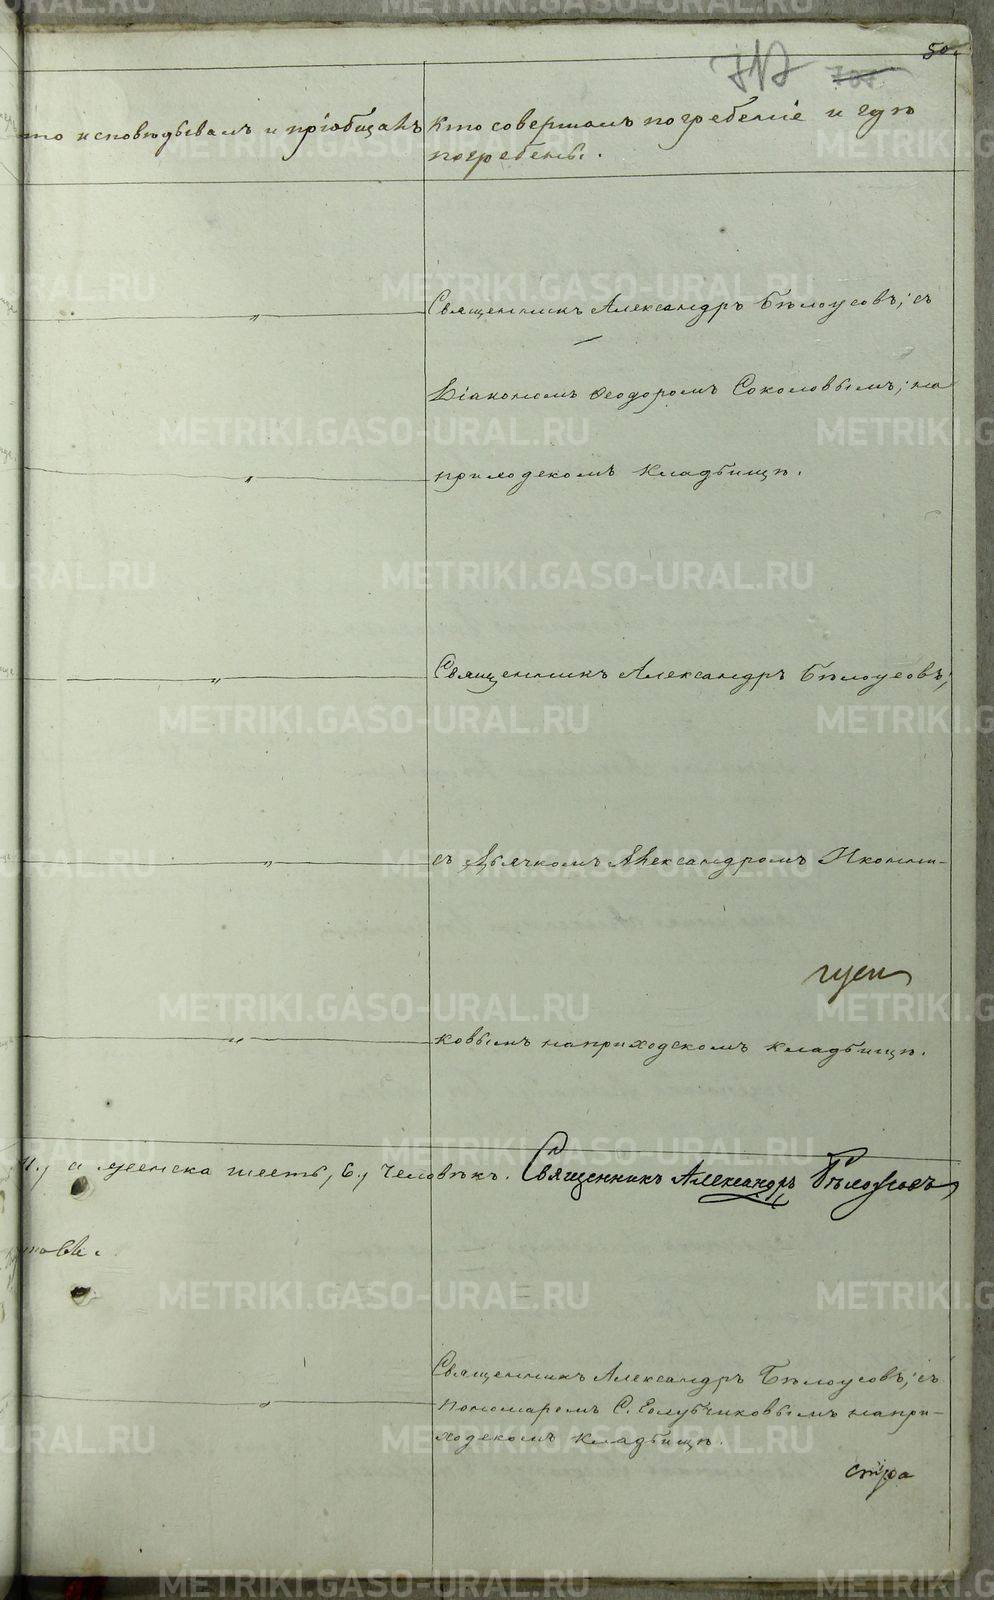 50.
717 701
то исповѣдывалъ и пріобщалъ
Кто совершалъ погребеніе и гдѣ
погребены.
Священникъ Александръ Бѣлоусовъ; съ
Діакономъ Ѳеодоромъ Соколовымъ; на
приходскомъ кладбищѣ.
Священникъ Александръ Бѣлоусовъ;
съ Дьячкомъ Александромъ Иконни-
ковымъ на приходскомъ кладбищѣ.
а женска шесть, 6., человѣкъ. Священникъ Александръ Бѣлоусовъ
Священникъ Александръ Бѣлоусовъ; съ
пономаремъ С. Голубчиковымъ на при-
ходскомъ кладбищѣ.
METRIKI.GASO-URAL.RU